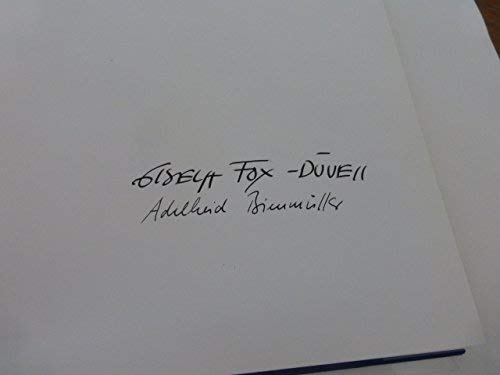 GISELA FOX-DÜVELL
Adelheid Birnmüller